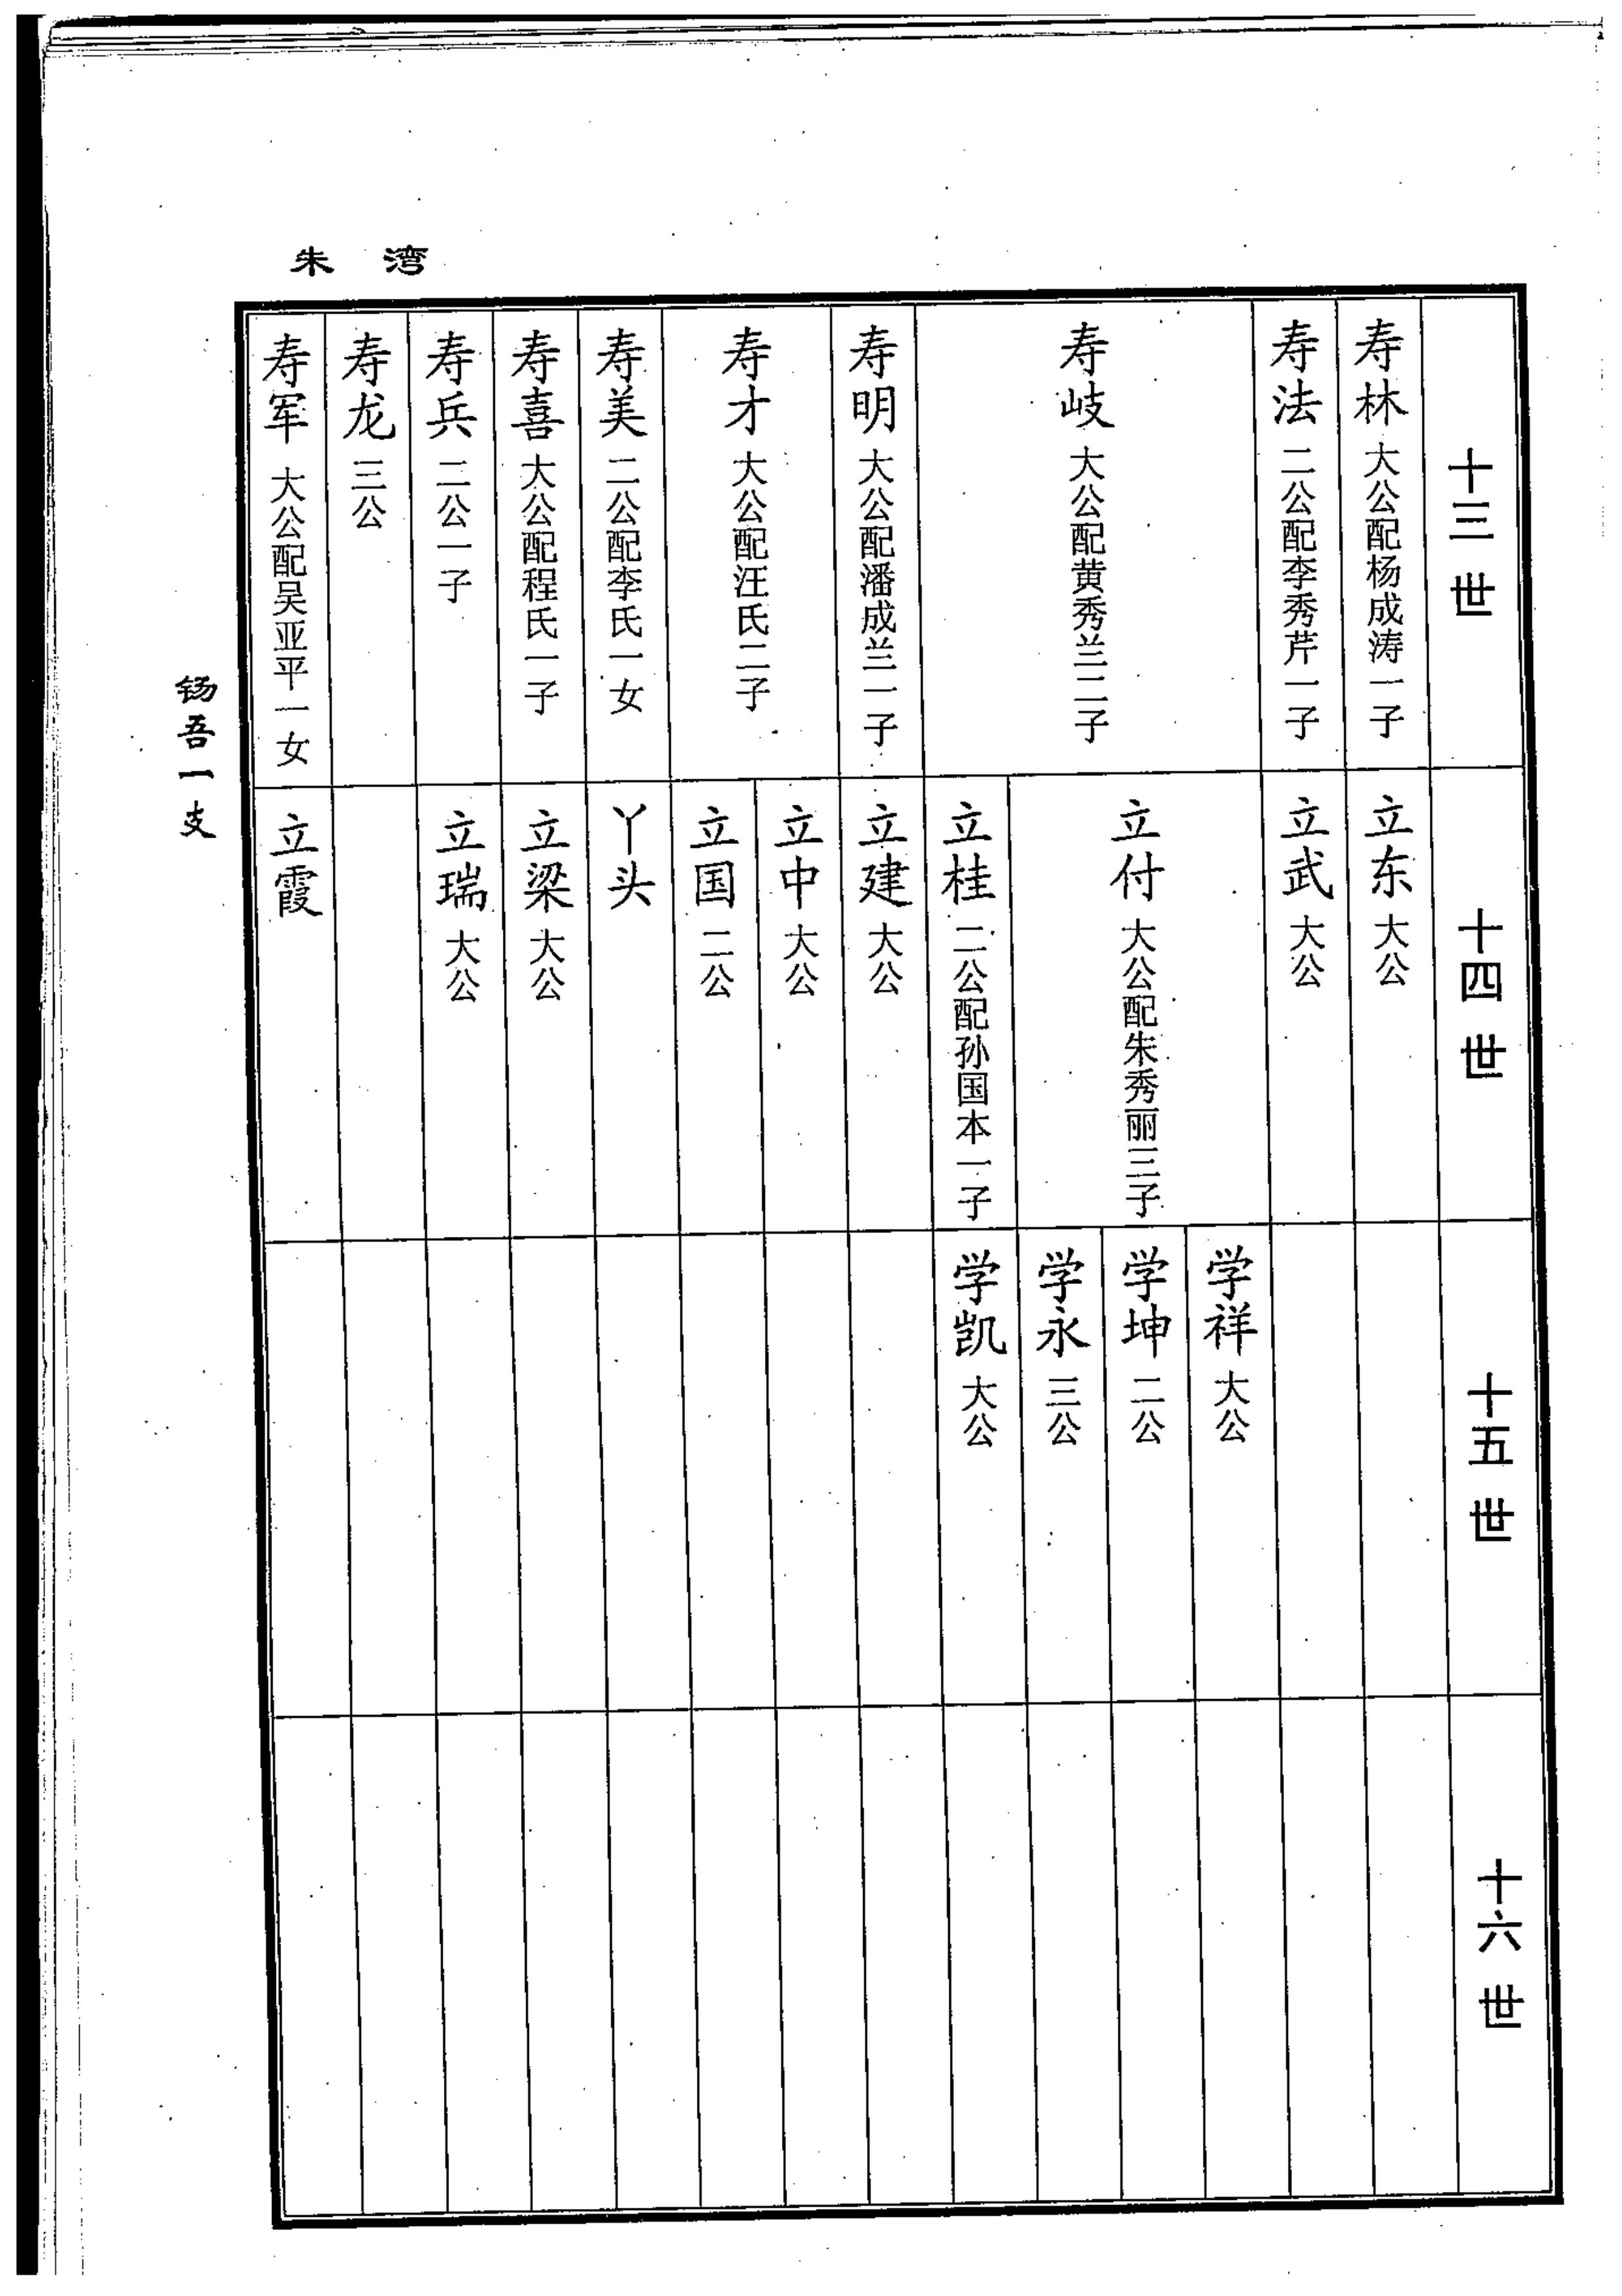 朱 湾
十三世
寿林 大公配杨成涛一子
寿法 二公配李秀芹一子
寿岐 大公配黄秀兰二子
寿明 大公配潘成兰一子
寿才 大公配汪氏二子
寿美 二公配李氏一女
寿喜 大公配程氏一子
寿兵 二公一子
寿龙 三公
寿军 大公配吴亚平一女
十四世
立东 大公
立武 大公
立付 大公配朱秀丽三子
立桂 二公配孙国本一子
立建 大公
立中 大公
立国 二公
丫头
立梁 大公
立瑞 大公
立霞
十五世
学祥 大公
学坤 二公
学永 三公
学凯 大公
十六世
钖吾一支